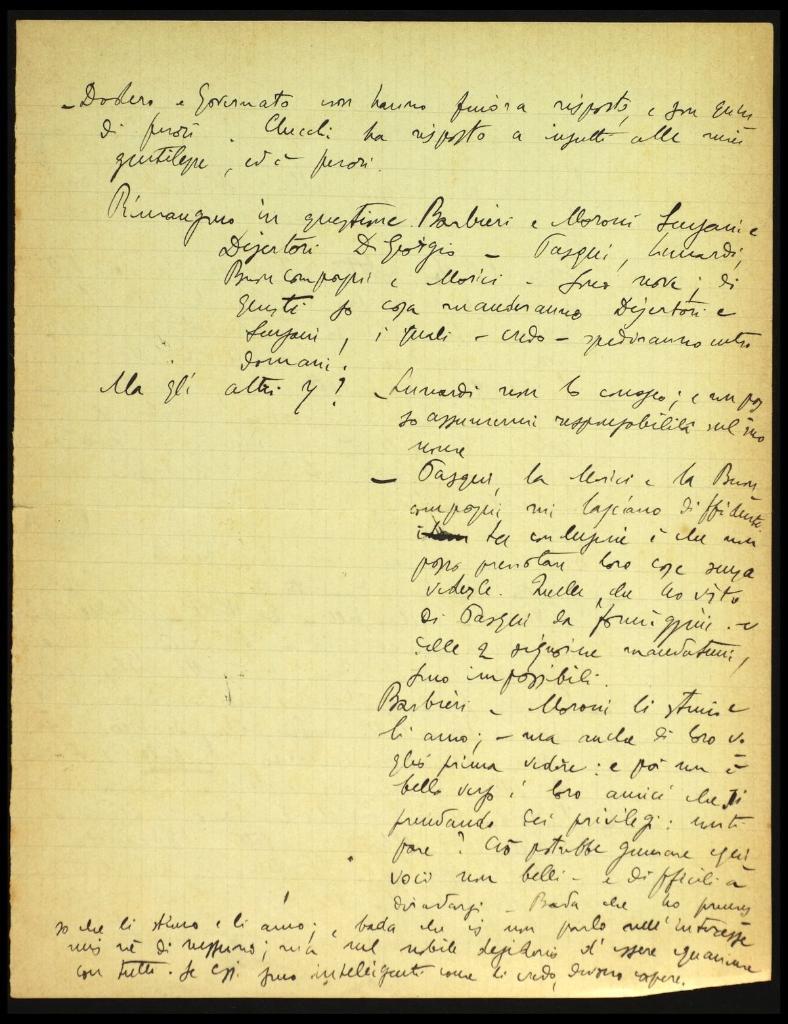 - Dodero e Governato non hanno finora risposto, e son
di fuori. Chicchi ha risposto a insulti alle mie
gentilezze, ed è fuori.
Rimangono in questione. Barbieri e Moroni e
Disertori Di Giorgio - Pasqui, Lunardi,
Buoncompagni e Morici - Sono nove; di
questi so cosa manderanno Disertori e
i quali - credo - spediranno entro
domani.
Ma gli altri 7? - Lunardi non lo conosco; e non pos
so assumermi responsabilità sul suo
nome
- Pasqui, la Morici e la Buon
compagni mi lasciano diffidente.
La conclusione è che non
posso presentare loro cose senza
vederle. Quelle che ho visto
di Pasqui da Formiggini - e
delle 2 signorine mandatemi,
sono impossibili.
Barbieri e Moroni li stimo e
li amo; - ma anche di loro vo
glio prima vedere: e poi non è
bello verso i loro amici che si
prendano dei privilegi: non ti
pare? Ciò potrebbe generare
voci non belli - e difficili a
- Bada che ho premes
so che li stimo e li amo; e bada che io non parlo nell'interesse
mio nè di nessuno; ma nel nobile desiderio d'essere
con tutti. Se essi sono intelligenti come li credo, devono capire.